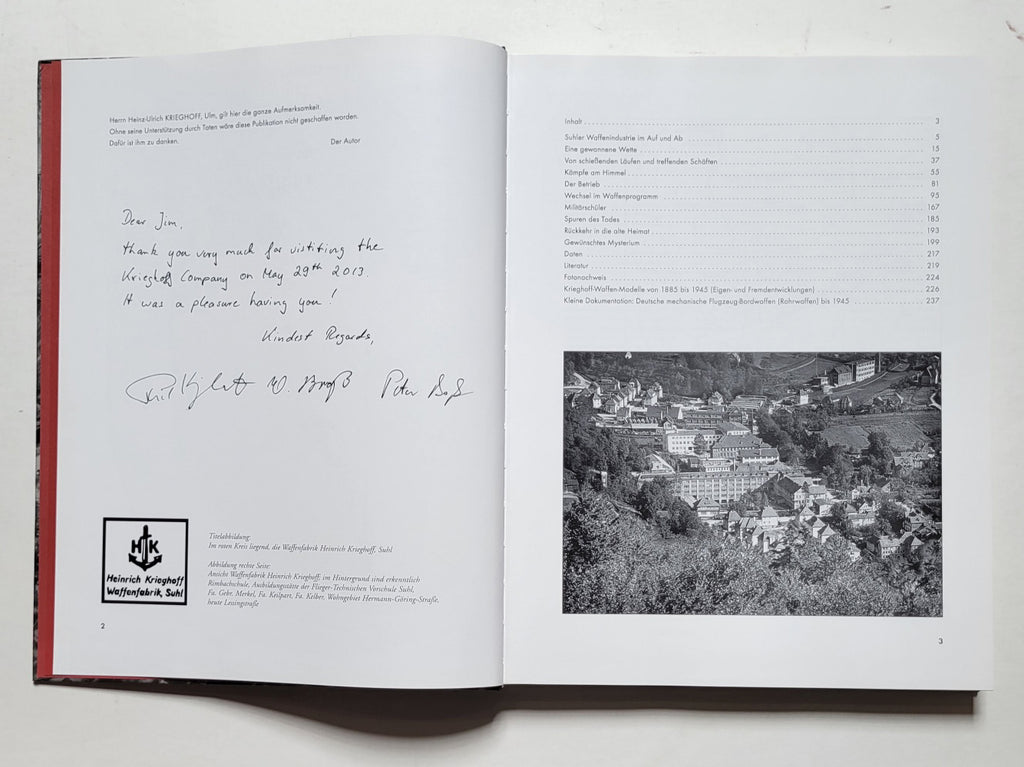 Herrn Heinz-Ulrich KRIEGHOFF, Ulm, gilt hier die ganze Aufmerksamkeit.
Ohne seine Unterstützung durch Taten wäre diese Publikation nicht geschaffen worden.
Dafür ist ihm zu danken. Der Autor
Dear Jim,
thank you very much for vistiting the
Krieghoff Company on May 29th 2013.
It was a pleasure having you!
Kindest Regards,
Peter
HK
Heinrich Krieghoff
Waffenfabrik, Suhl
Titelabbildung:
Im roten Kreis liegend, die Waffenfabrik Heinrich Krieghoff, Suhl
Abbildung rechte Seite:
Ansicht Waffenfabrik Heinrich Krieghoff; im Hintergrund sind erkenntlich
Rimbachschule, Ausbildungsstätte der Flieger-Technischen Vorschule Suhl,
Fa. Gebr. Merkel, Fa. Keilpart, Fa. Kelber, Wohngebiet Hermann-Göring-Straße,
heute Lessingstraße
2
Inhalt 3
Suhler Waffenindustrie im Auf und Ab 5
Eine gewonnene Wette 15
Von schießenden Läufen und treffenden Schäften 37
Kämpfe am Himmel 55
Der Betrieb 81
Wechsel im Waffenprogramm 95
Militärschüler 167
Spuren des Todes 185
Rückkehr in die alte Heimat 193
Gewünschtes Mysterium 199
Daten 217
Literatur 219
Fotonachweis 224
Krieghoff-Waffen-Modelle von 1885 bis 1945 (Eigen- und Fremdentwicklungen) 226
Kleine Dokumentation: Deutsche mechanische Flugzeug-Bordwaffen (Rohrwaffen) bis 1945 237
3